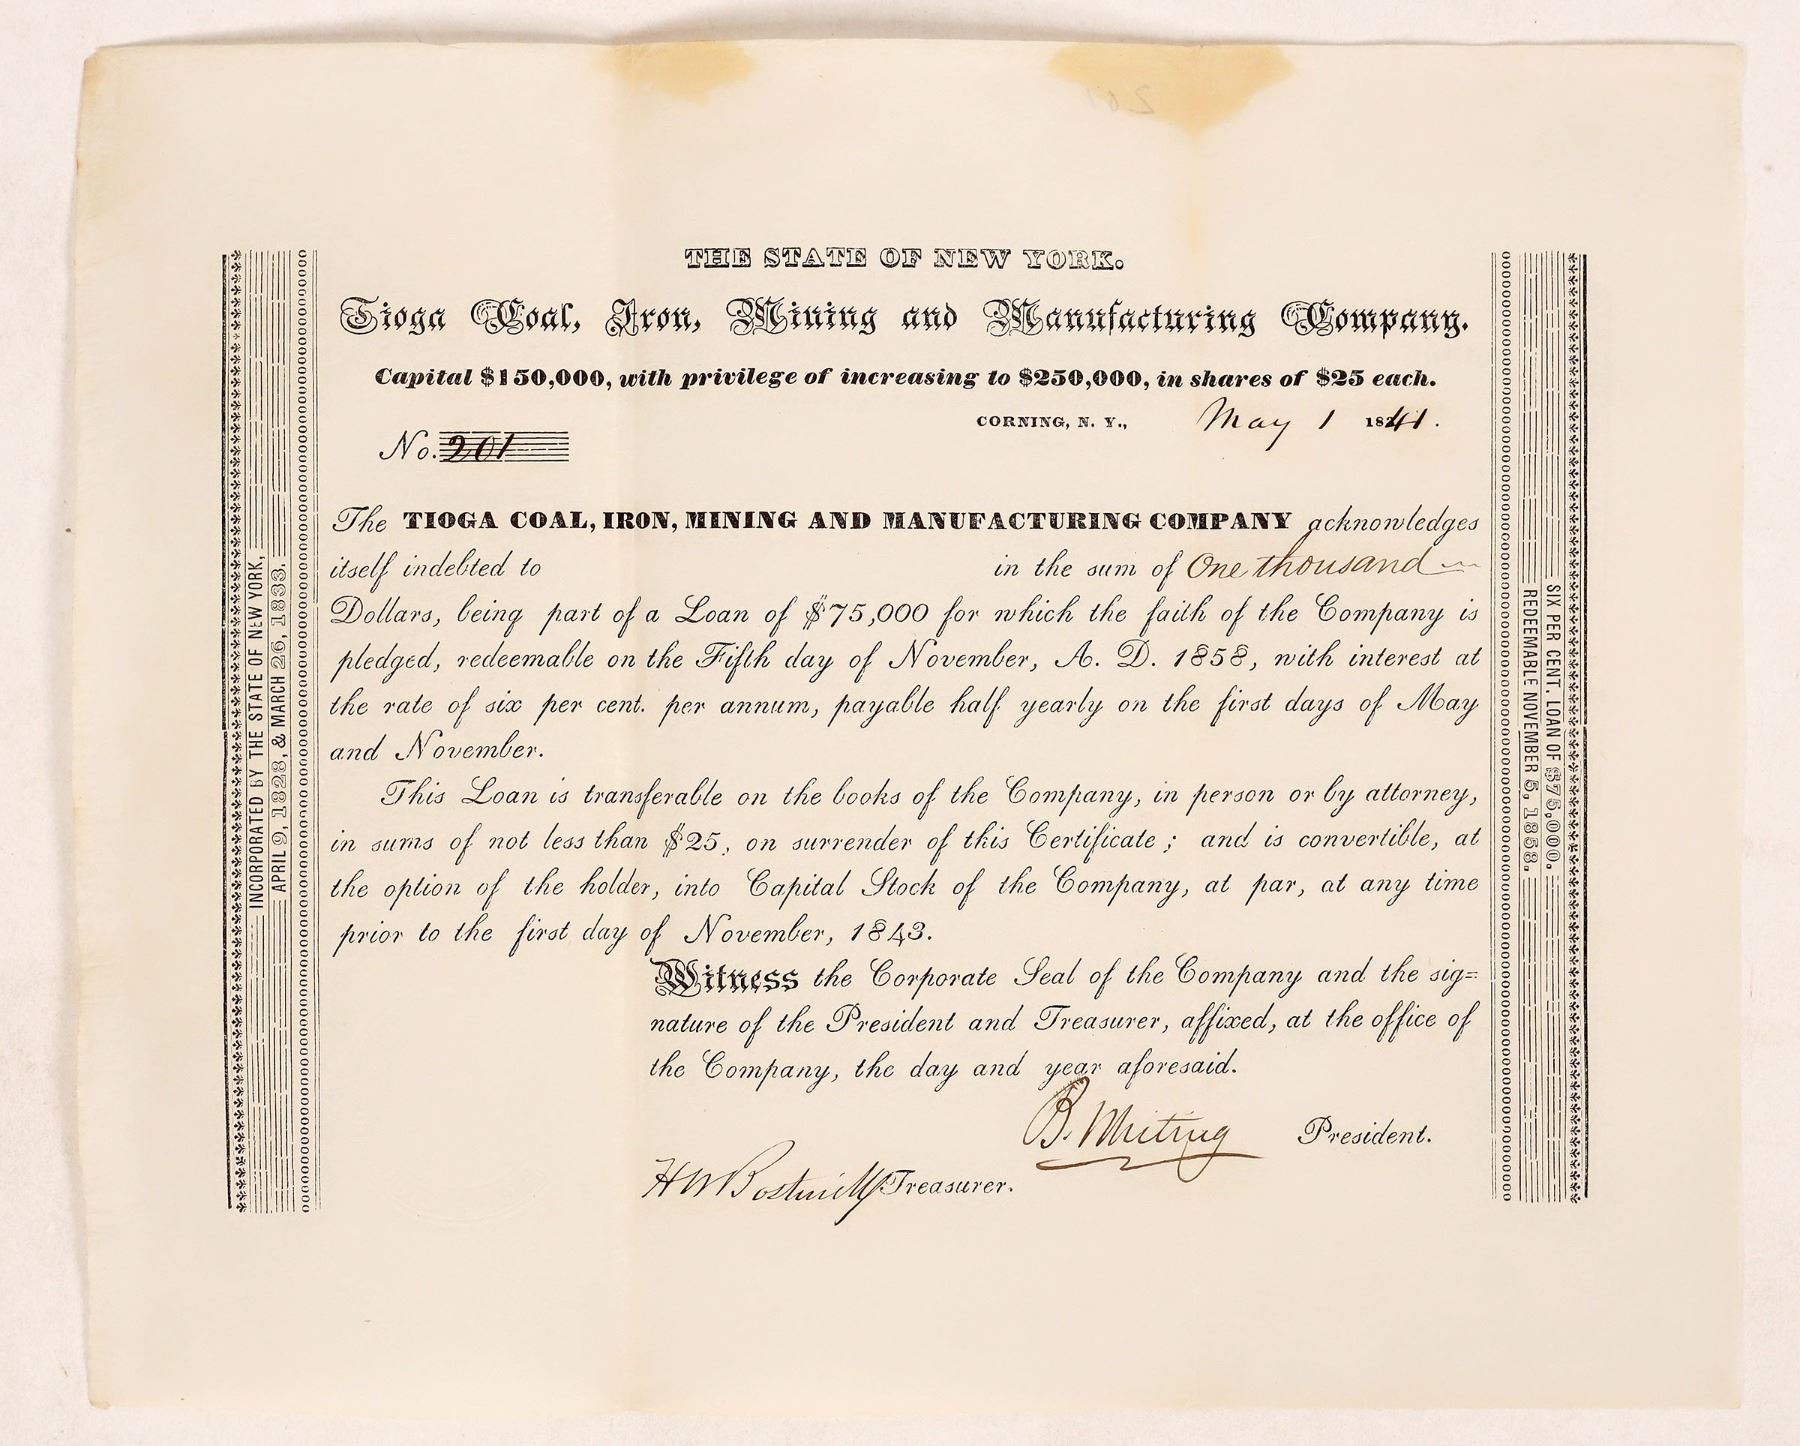 THE STATE OF NEW YORK.
Tioga Coal, Iron, Mining and Manufacturing Company.
Capital $150,000, with privilege of increasing to $250,000, in shares of $25 each.
CORNING, N. Y., May 1 1841.
No. 201
The TIOGA COAL, IRON, MINING AND MANUFACTURING COMPANY acknowledges
itself indebted to in the sum of One thousand
Dollars, being part of a Loan of $75,000 for which the faith of the Company is
pledged, redeemable on the Fifth day of November, A. D. 1858, with interest at
the rate of six per cent. per annum, payable half yearly on the first days of May
and November.
This Loan is transferable on the books of the Company, in person or by attorney,
in sums of not less than $25, on surrender of this Certificate; and is convertible, at
the option of the holder, into Capital Stock of the Company, at par, at any time
prior to the first day of November, 1843.
Witness the Corporate Seal of the Company and the sig=
nature of the President and Treasurer, affixed, at the office of
the Company, the day and year aforesaid.
B. Whiting President.
H W Bostwick Treasurer.
INCORPORATED BY THE STATE OF NEW YORK,
APRIL 9, 1828, & MARCH 26, 1833.
SIX PER CENT. LOAN OF $75,000.
REDEEMABLE NOVEMBER 5, 1858.
201